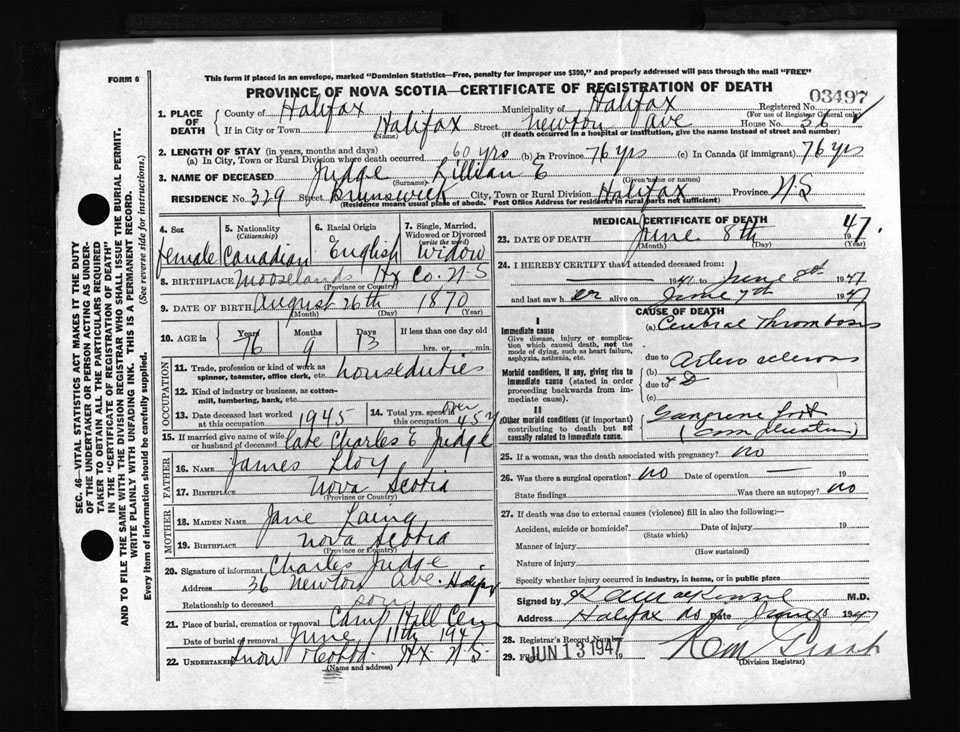 FORM 6
This form if placed in an envelope, marked "Dominion Statistics—Free, penalty for improper use $300," and properly addressed will pass through the mail "FREE"
PROVINCE OF NOVA SCOTIA—CERTIFICATE OF REGISTRATION OF DEATH
03497
1. PLACE OF DEATH
County of Halifax Municipality of Halifax Registered No.
(For use of Registrar General only)
If in City or Town Halifax Street Newton Ave House No. 36
(Name) (If death occurred in a hospital or institution, give the name instead of street and number)
2. LENGTH OF STAY (in years, months and days)
(a) In City, Town or Rural Division where death occurred 60 yrs (b) In Province 76 yrs (c) In Canada (if immigrant) 76 yrs
3. NAME OF DECEASED Judge Lillian E
(Surname) (Given name or names)
RESIDENCE No. 329 Street Brunswick City, Town or Rural Division Halifax Province N.S
(Residence means usual place of abode. Post Office Address for residents in rural parts not sufficient)
4. Sex female
5. Nationality (Citizenship) Canadian
6. Racial Origin English
7. Single, Married, Widowed or Divorced (write the word) Widow
8. BIRTHPLACE Mooselands Hx Co. N-S
(Province or Country)
9. DATE OF BIRTH August 26th 1870
(Month) (Day) (Year)
10. AGE in Years Months Days If less than one day old
76 9 13 hrs. or min.
OCCUPATION
11. Trade, profession or kind of work as spinner, teamster, office clerk, etc. houseduties
12. Kind of industry or business, as cotton-mill, lumbering, bank, etc.
13. Date deceased last worked at this occupation 1945
14. Total yrs. spent in this occupation Over 45 y
15. If married give name of wife or husband of deceased late Charles E Judge
FATHER
16. NAME James
17. BIRTHPLACE Nova Scotia
(Province or Country)
MOTHER
18. MAIDEN NAME Jane Laing
19. BIRTHPLACE Nova Scotia
(Province or Country)
20. Signature of informant Charles Judge
Address 36 Newton Ave. Halifax
Relationship to deceased son
21. Place of burial, cremation or removal Camp Hill Cem
Date of burial or removal June 11th 1947
22. Undertaker Snow Hx N.S.
(Name and address)
MEDICAL CERTIFICATE OF DEATH
23. DATE OF DEATH June 8th 1947.
(Month) (Day) (Year)
24. I HEREBY CERTIFY that I attended deceased from:
1941 to June 8th 1947
and last saw h er alive on June 7th 1947
CAUSE OF DEATH
I
Immediate cause
Give disease, injury or complication which caused death, not the mode of dying, such as heart failure, asphyxia, asthenia, etc.
(a) Cerebral Thrombosis
due to
Morbid conditions, if any, giving rise to immediate cause (stated in order proceeding backwards from immediate cause).
(b) Arterio sclerosis
due to
(c)
II
Other morbid conditions (if important) contributing to death but not causally related to immediate cause.
Gangrene foot
(complication)
25. If a woman, was the death associated with pregnancy? no
26. Was there a surgical operation? no Date of operation — 19
State findings Was there an autopsy? no
27. If death was due to external causes (violence) fill in also the following:—
Accident, suicide or homicide? Date of injury 19
(State which)
Manner of injury
(How sustained)
Nature of injury
Specify whether injury occurred in industry, in home, or in public place
Signed by M.D.
Address Halifax NS Date June 1947
28. Registrar's Record Number
29. FILED JUN 13 1947 19
(Division Registrar)
SEC. 46—VITAL STATISTICS ACT MAKES IT THE DUTY
OF THE UNDERTAKER OR PERSON ACTING AS UNDERTAKER TO OBTAIN ALL THE PARTICULARS REQUIRED
IN THE "CERTIFICATE OF REGISTRATION OF DEATH"
AND TO FILE THE SAME WITH THE DIVISION REGISTRAR WHO SHALL ISSUE THE BURIAL PERMIT.
WRITE PLAINLY WITH UNFADING INK. THIS IS A PERMANENT RECORD.
Every item of information should be carefully supplied. (See reverse side for instructions.)